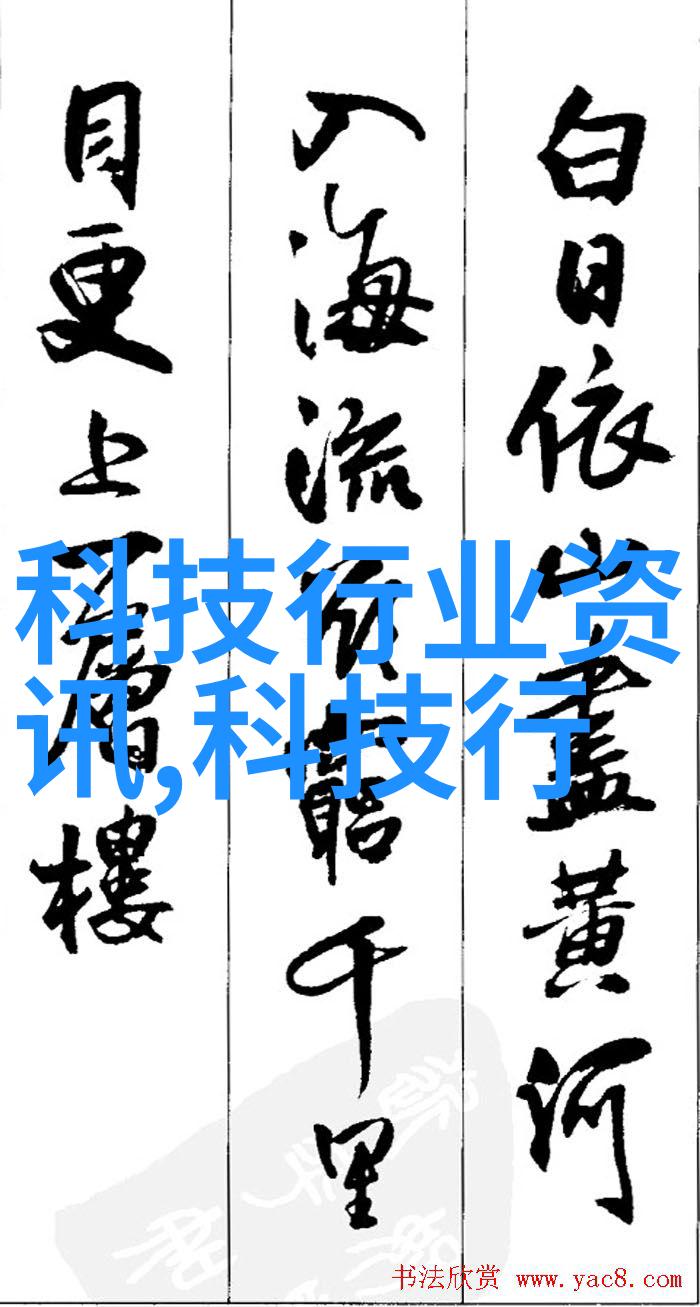 白日依山盡黄河
入海流欲窮千里
目更上一層樓
科技行业资
讯,科技行
书法欣赏 www.yac8.com